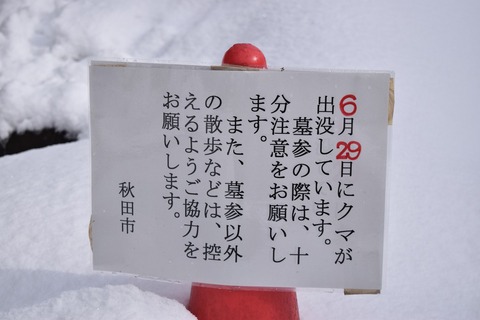 6月29日にクマが
出没しています。
墓参の際は、十
分注意をお願いし
ます。
また、墓参以外
の散歩などは、控
えるようご協力を
お願いします。
秋田市